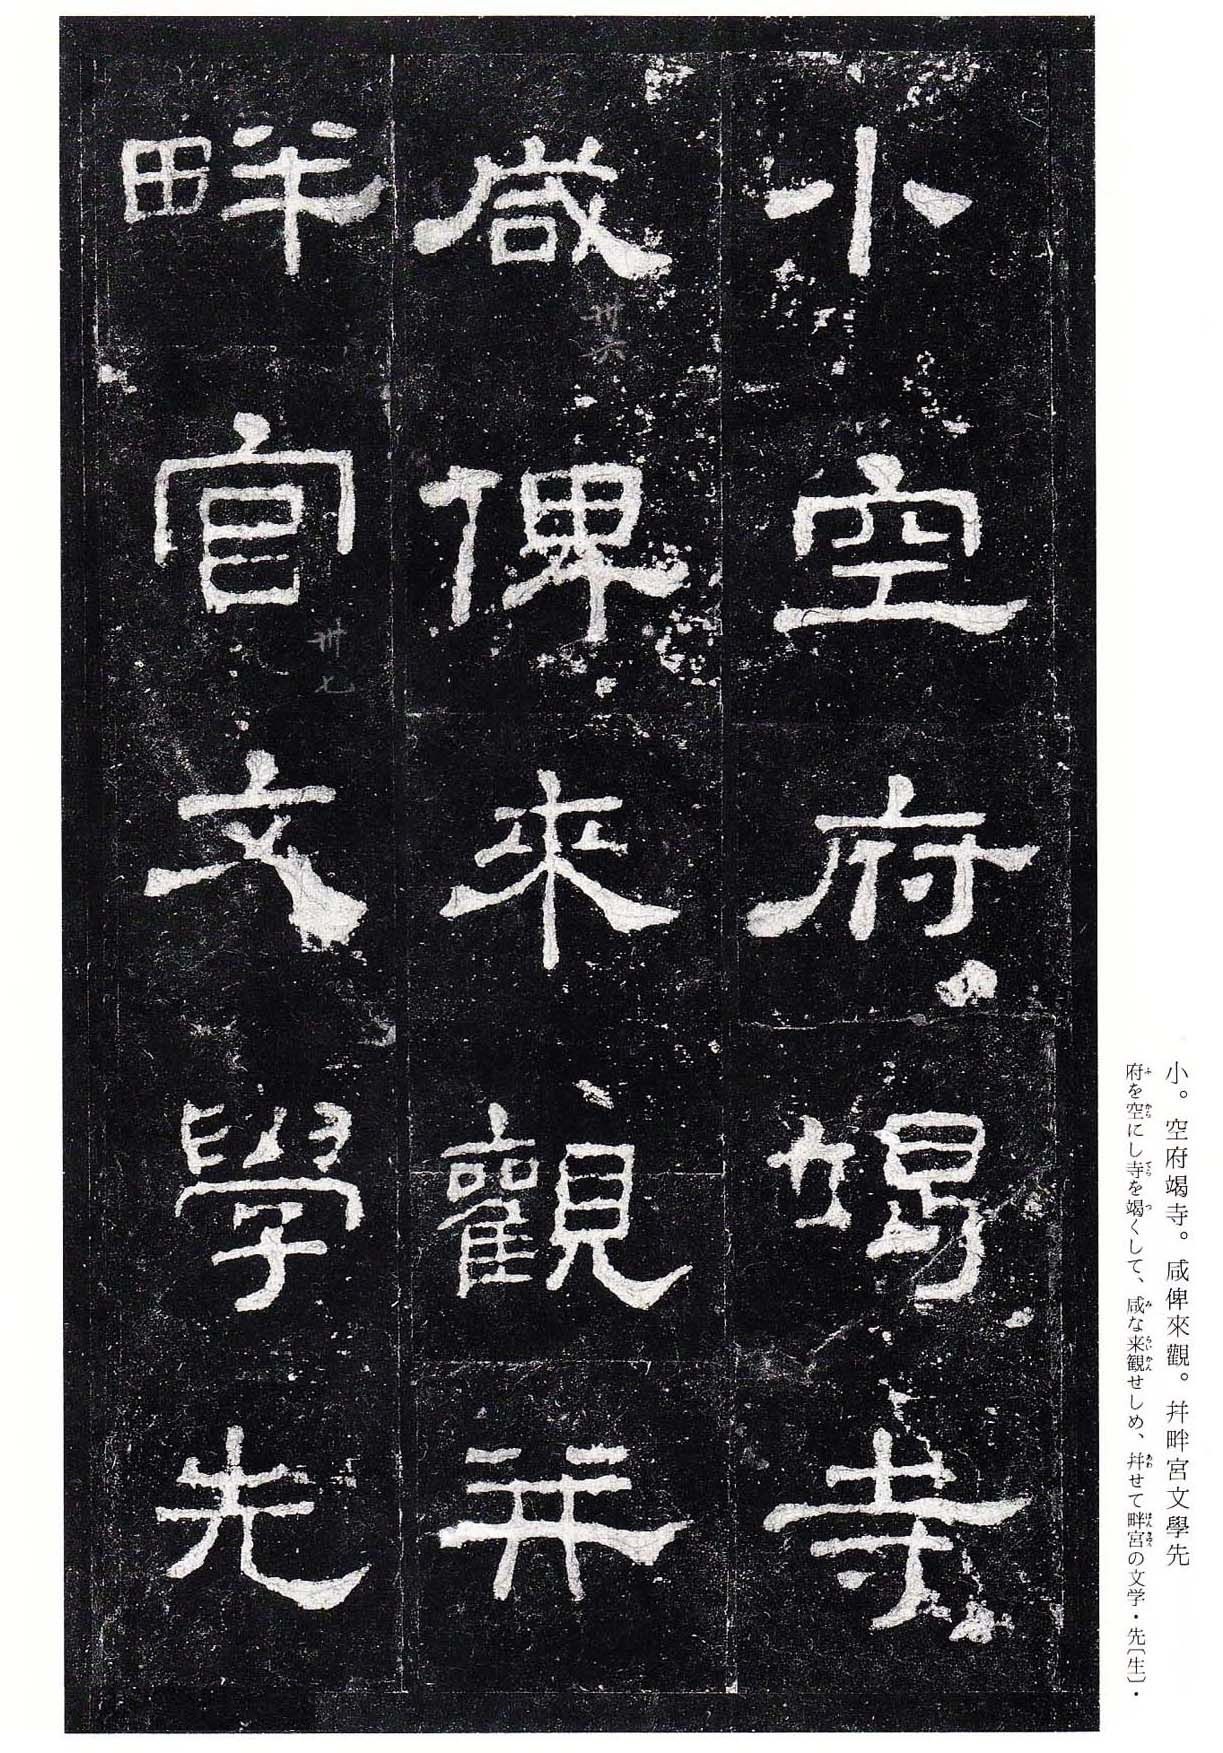 小空府竭寺
咸俾來觀并
畔宮文學先
卅六
卅七
小。空府竭寺。咸俾來觀。幷畔宮文學先
府を空にし寺を竭くして、咸な来観せしめ、幷せて畔宮の文学・先〔生〕・